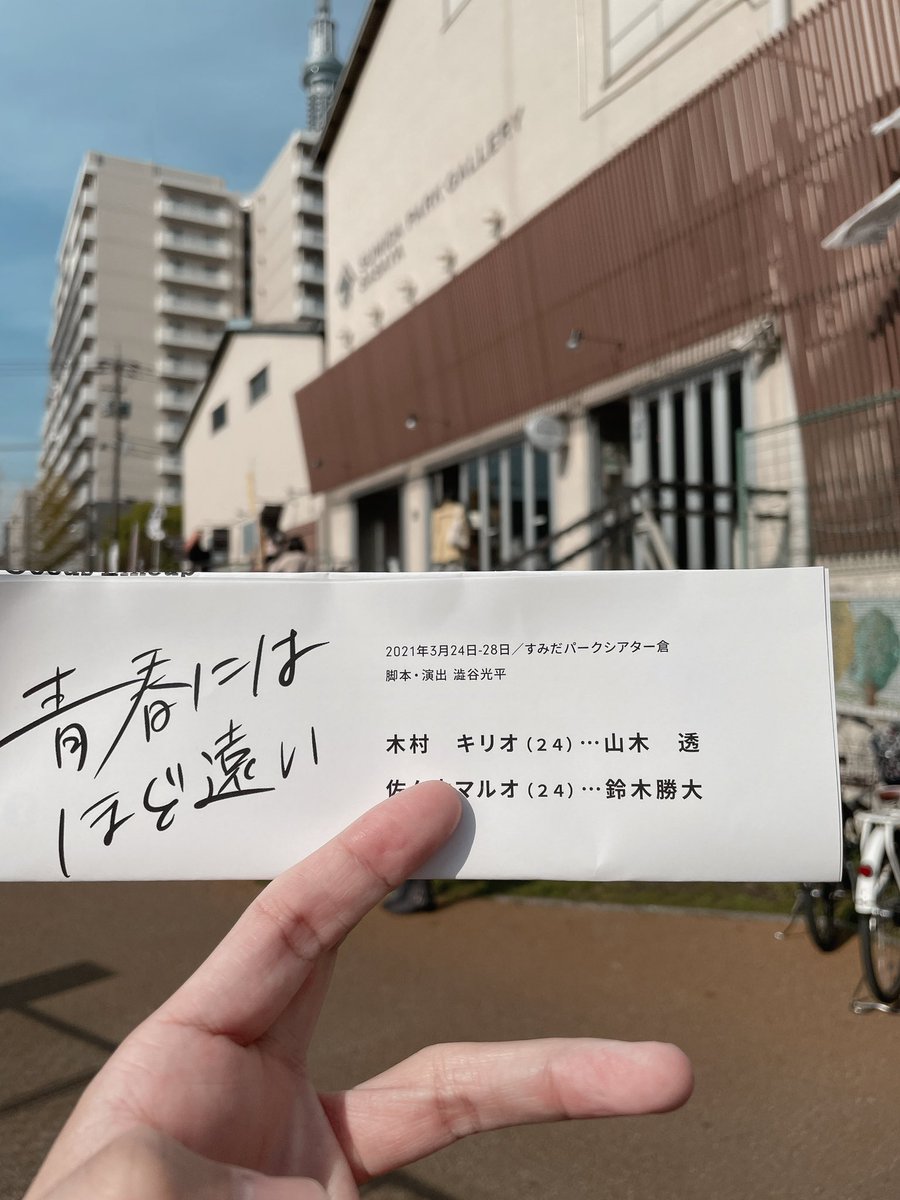 SUMIDA PARK GALLERY
SASAYA
Goods Lineup
青春には
ほど遠い
2021年3月24日-28日／すみだパークシアター倉
脚本・演出 澁谷光平
木村　キリオ（２４）…山木　透
マルオ（２４）…鈴木勝大